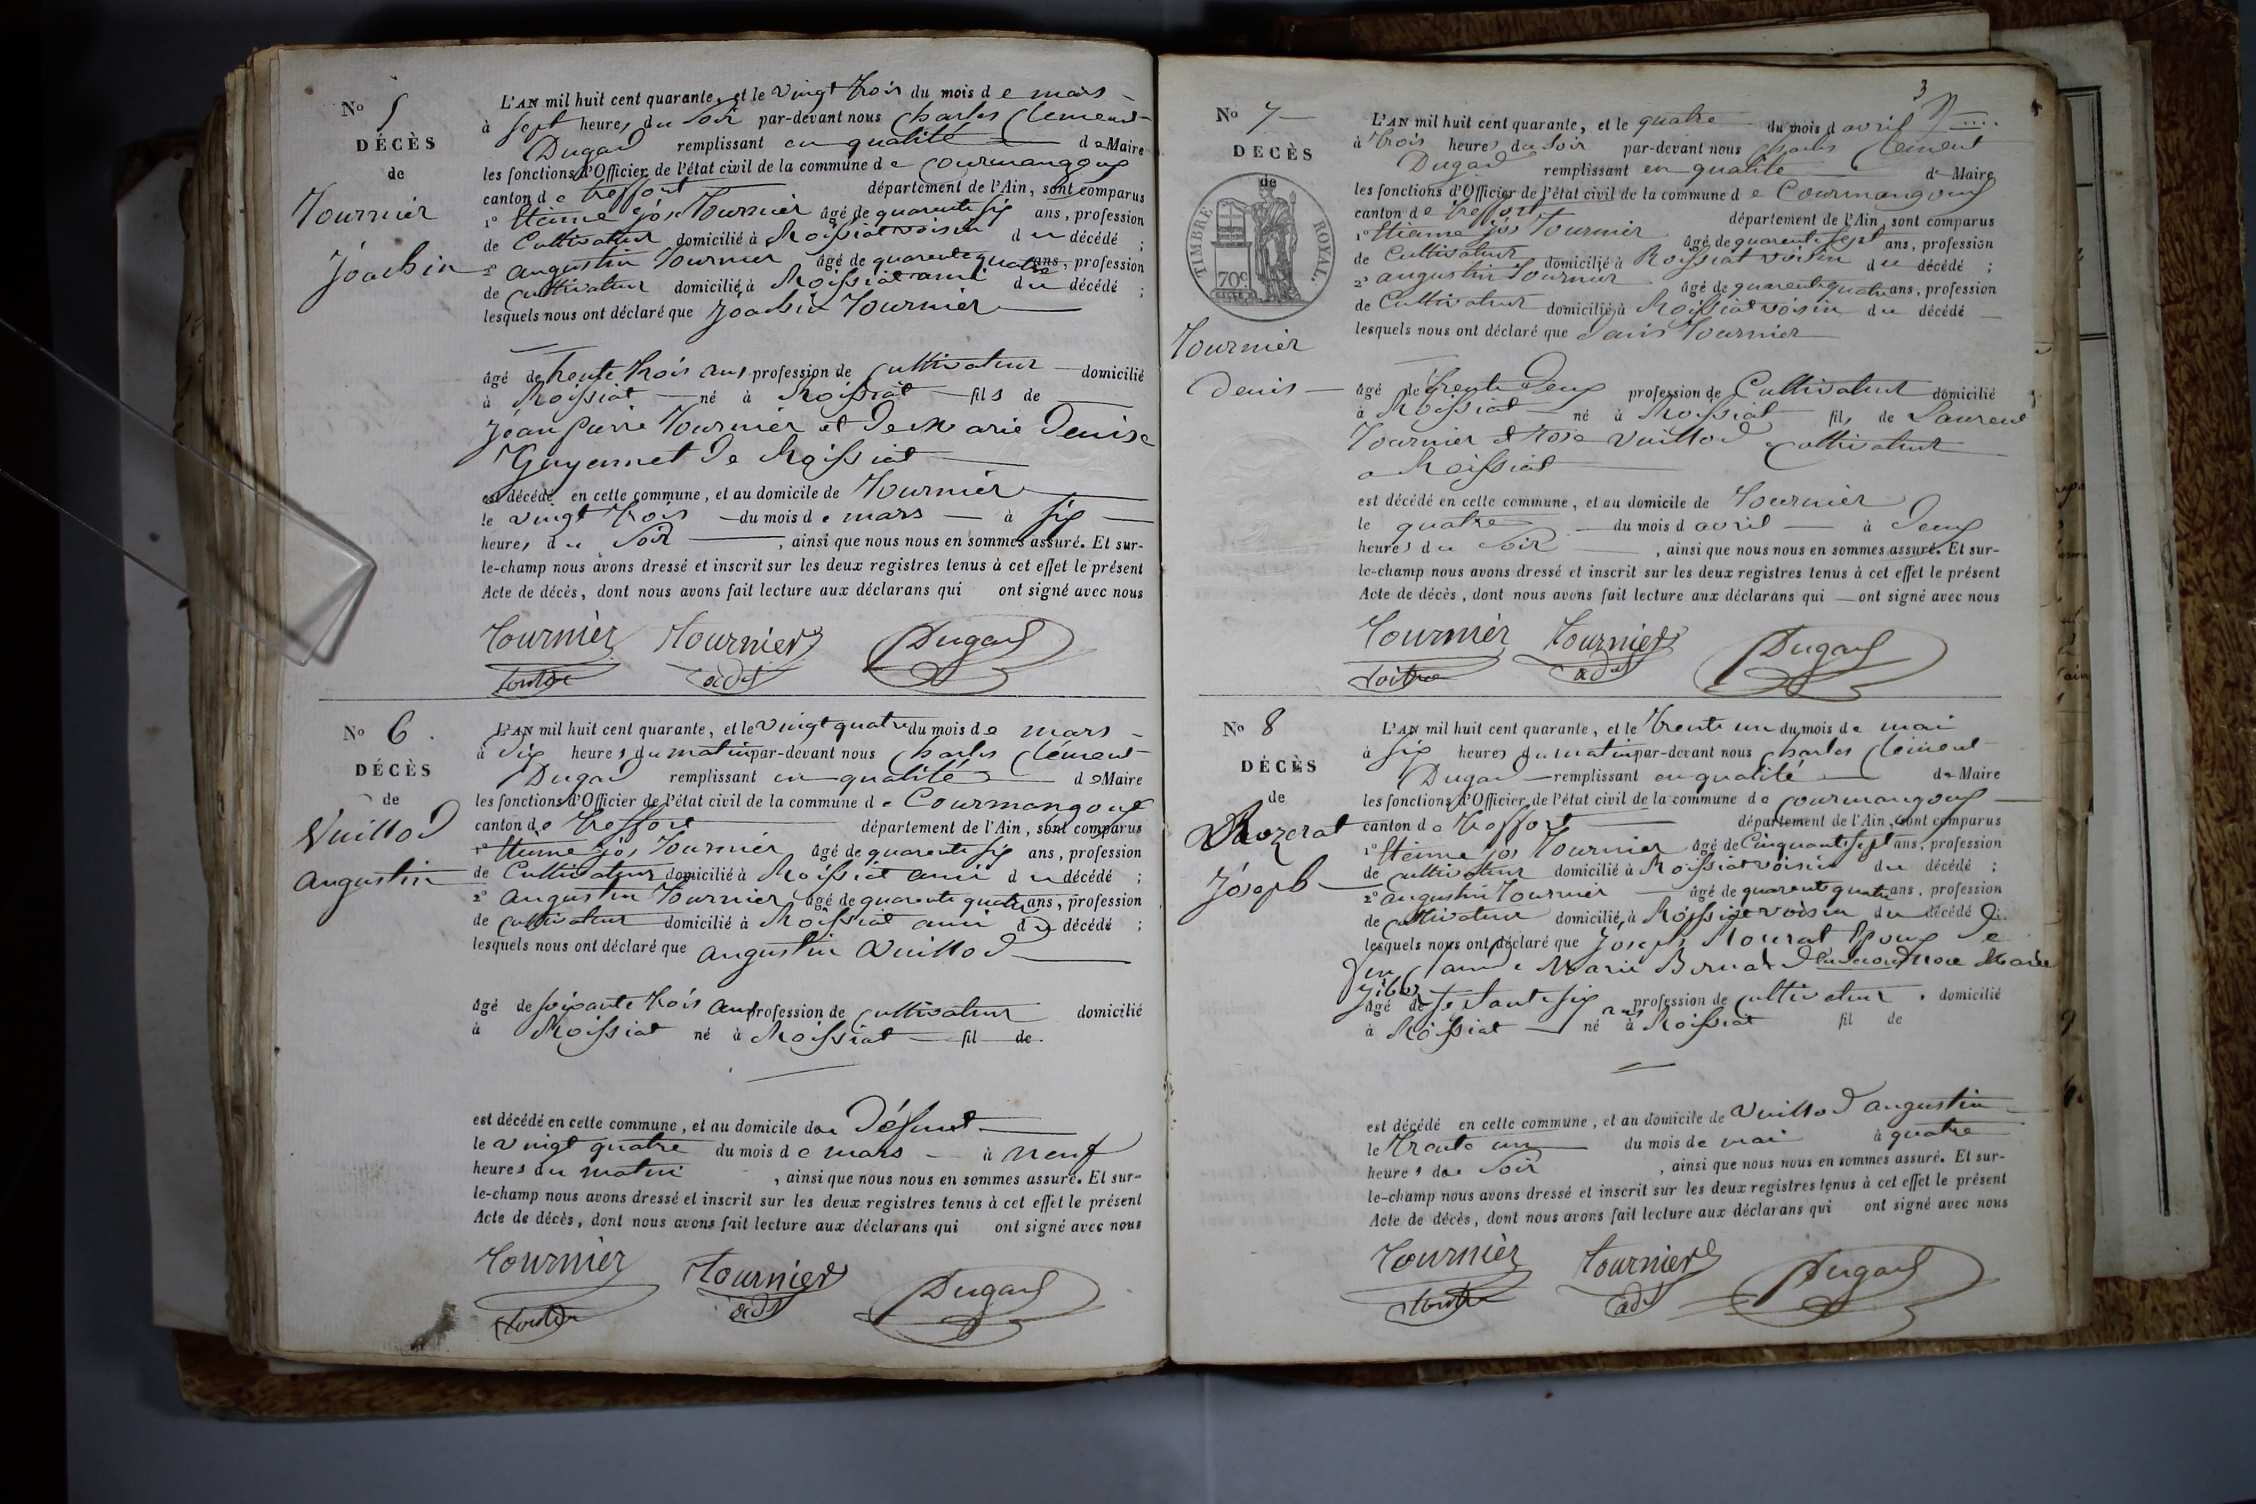 No 5
DÉCÈS
de
Tournier
Joachin
L'AN mil huit cent quarante, et le vingt trois du mois de mars
à sept heures du soir par-devant nous Charles Clément
Dugad remplissant en qualité de Maire
les fonctions d'Officier de l'état civil de la commune de Courmangoux
canton de treffort département de l'Ain, sont comparus
1° Etienne jos Tournier âgé de quarante six ans, profession
de Cultivateur domicilié à Roissiat voisin du décédé ;
2° augustin Tournier âgé de quarente quatre ans, profession
de cultivateur domicilié à Roissiat ami du décédé ;
lesquels nous ont déclaré que Joachin Tournier
âgé de trente trois ans profession de cultivateur domicilié
à Roissiat né à Roissiat fils de
Jean pierre Tournier et de Marie Denise
Guyennet de Roissiat
est décédé en cette commune, et au domicile de Tournier
le vingt trois du mois de mars à six
heures du soir , ainsi que nous nous en sommes assuré. Et sur-
le-champ nous avons dressé et inscrit sur les deux registres tenus à cet effet le présent
Acte de décès, dont nous avons fait lecture aux déclarans qui ont signé avec nous
Tournier Tournier Dugad
adt
No 6.
DÉCÈS
de
Vuillod
augustin
L'AN mil huit cent quarante, et le vingt quatre du mois de mars
à dix heures du matin par-devant nous Charles Clément
Dugad remplissant en qualité de Maire
les fonctions d'Officier de l'état civil de la commune de Courmangoux
canton de treffort département de l'Ain, sont comparus
1° Etienne jos Tournier âgé de quarente six ans, profession
de Cultivateur domicilié à Roissiat ami du décédé ;
2° augustin Tournier âgé de quarente quatre ans, profession
de cultivateur domicilié à Roissiat ami du décédé ;
lesquels nous ont déclaré que augustin Vuillod
âgé de soixante trois ans profession de cultivateur domicilié
à Roissiat né à Roissiat fil de
est décédé en cette commune, et au domicile du Défunt
le vingt quatre du mois de mars à neuf
heures du matin , ainsi que nous nous en sommes assuré. Et sur-
le-champ nous avons dressé et inscrit sur les deux registres tenus à cet effet le présent
Acte de décès, dont nous avons fait lecture aux déclarans qui ont signé avec nous
Tournier Tournier Dugad
adt
3
No 7
DÉCÈS
de
TIMBRE ROYAL.
70c
Tournier
Denis
L'AN mil huit cent quarante, et le quatre du mois d avril
à trois heures du soir par-devant nous Charles Clément
Dugad remplissant en qualité de Maire
les fonctions d'Officier de l'état civil de la commune de Courmangoux
canton de treffort département de l'Ain, sont comparus
1° Etienne jos Tournier âgé de quarente sept ans, profession
de Cultivateur domicilié à Roissiat voisin du décédé ;
2° augustin Tournier âgé de quarente quatre ans, profession
de Cultivateur domicilié à Roissiat voisin du décédé
lesquels nous ont déclaré que Denis Tournier
âgé de trente deux profession de Cultivateur domicilié
à Roissiat né à Roissiat fils de Laurent
Tournier et Rose Vuillod cultivateur
a Roissiat
est décédé en cette commune, et au domicile de Tournier
le quatre du mois d avril à deux
heures du soir , ainsi que nous nous en sommes assuré. Et sur-
le-champ nous avons dressé et inscrit sur les deux registres tenus à cet effet le présent
Acte de décès, dont nous avons fait lecture aux déclarans qui ont signé avec nous
Tournier Tournier Dugad
adt
No 8
DÉCÈS
de
Joseph
L'AN mil huit cent quarante, et le trente un du mois de mai
à six heures du matin par-devant nous Charles Clément
Dugad remplissant en qualité de Maire
les fonctions d'Officier de l'état civil de la commune de Courmangoux
canton de treffort département de l'Ain, sont comparus
1° Etienne jos Tournier âgé de Cinquante sept ans, profession
de cultivateur domicilié à Roissiat voisin du décédé ;
2° augustin Tournier âgé de quarente quatre ans, profession
de cultivateur domicilié à Roissiat voisin du décédé
lesquels nous ont déclaré que Joseph époux de
Marie
âgé de septante six ans profession de cultivateur domicilié
à Roissiat né à Roissiat fil de
est décédé en cette commune, et au domicile de Vuillod augustin
le trente un du mois de mai à quatre
heures du soir , ainsi que nous nous en sommes assuré. Et sur-
le-champ nous avons dressé et inscrit sur les deux registres tenus à cet effet le présent
Acte de décès, dont nous avons fait lecture aux déclarans qui ont signé avec nous
Tournier Tournier Dugad
adt